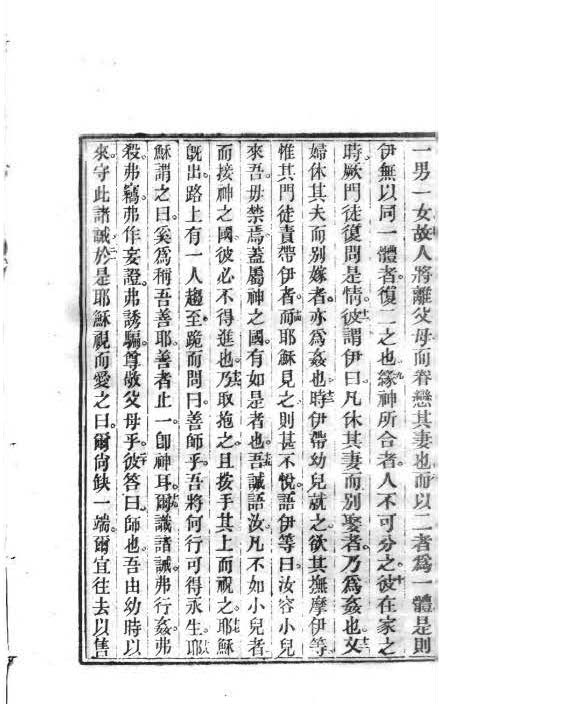 一男一女故人將離父母而眷戀其妻也而以二者爲一體是則
伊無以同一體者復二之也緣神所合者人不可分之彼在家之
時厥門徒復問是情彼謂伊曰凡休其妻而別娶者乃爲姦也又
婦休其夫而別嫁者亦爲姦也時伊帶幼兒就之欲其撫摩伊等
惟其門徒責帶伊者而耶穌見之則甚不悅語伊等曰汝容小兒
來吾毋禁焉蓋屬神之國有如是者也吾誠語汝凡不如小兒者
而接神之國彼必不得進也乃取抱之且按手其上而祝之耶穌
旣出路上有一人趨至跪而問曰善師乎吾將何行可得永生耶
穌謂之曰奚爲稱吾善耶善者止一卽神耳爾識諸誡弗行姦弗
殺弗竊弗作妄證弗誘騙尊敬父母乎彼答曰師也吾由幼時以
來守此諸誡於是耶穌視而愛之曰爾尙缺一端爾宜往去以售